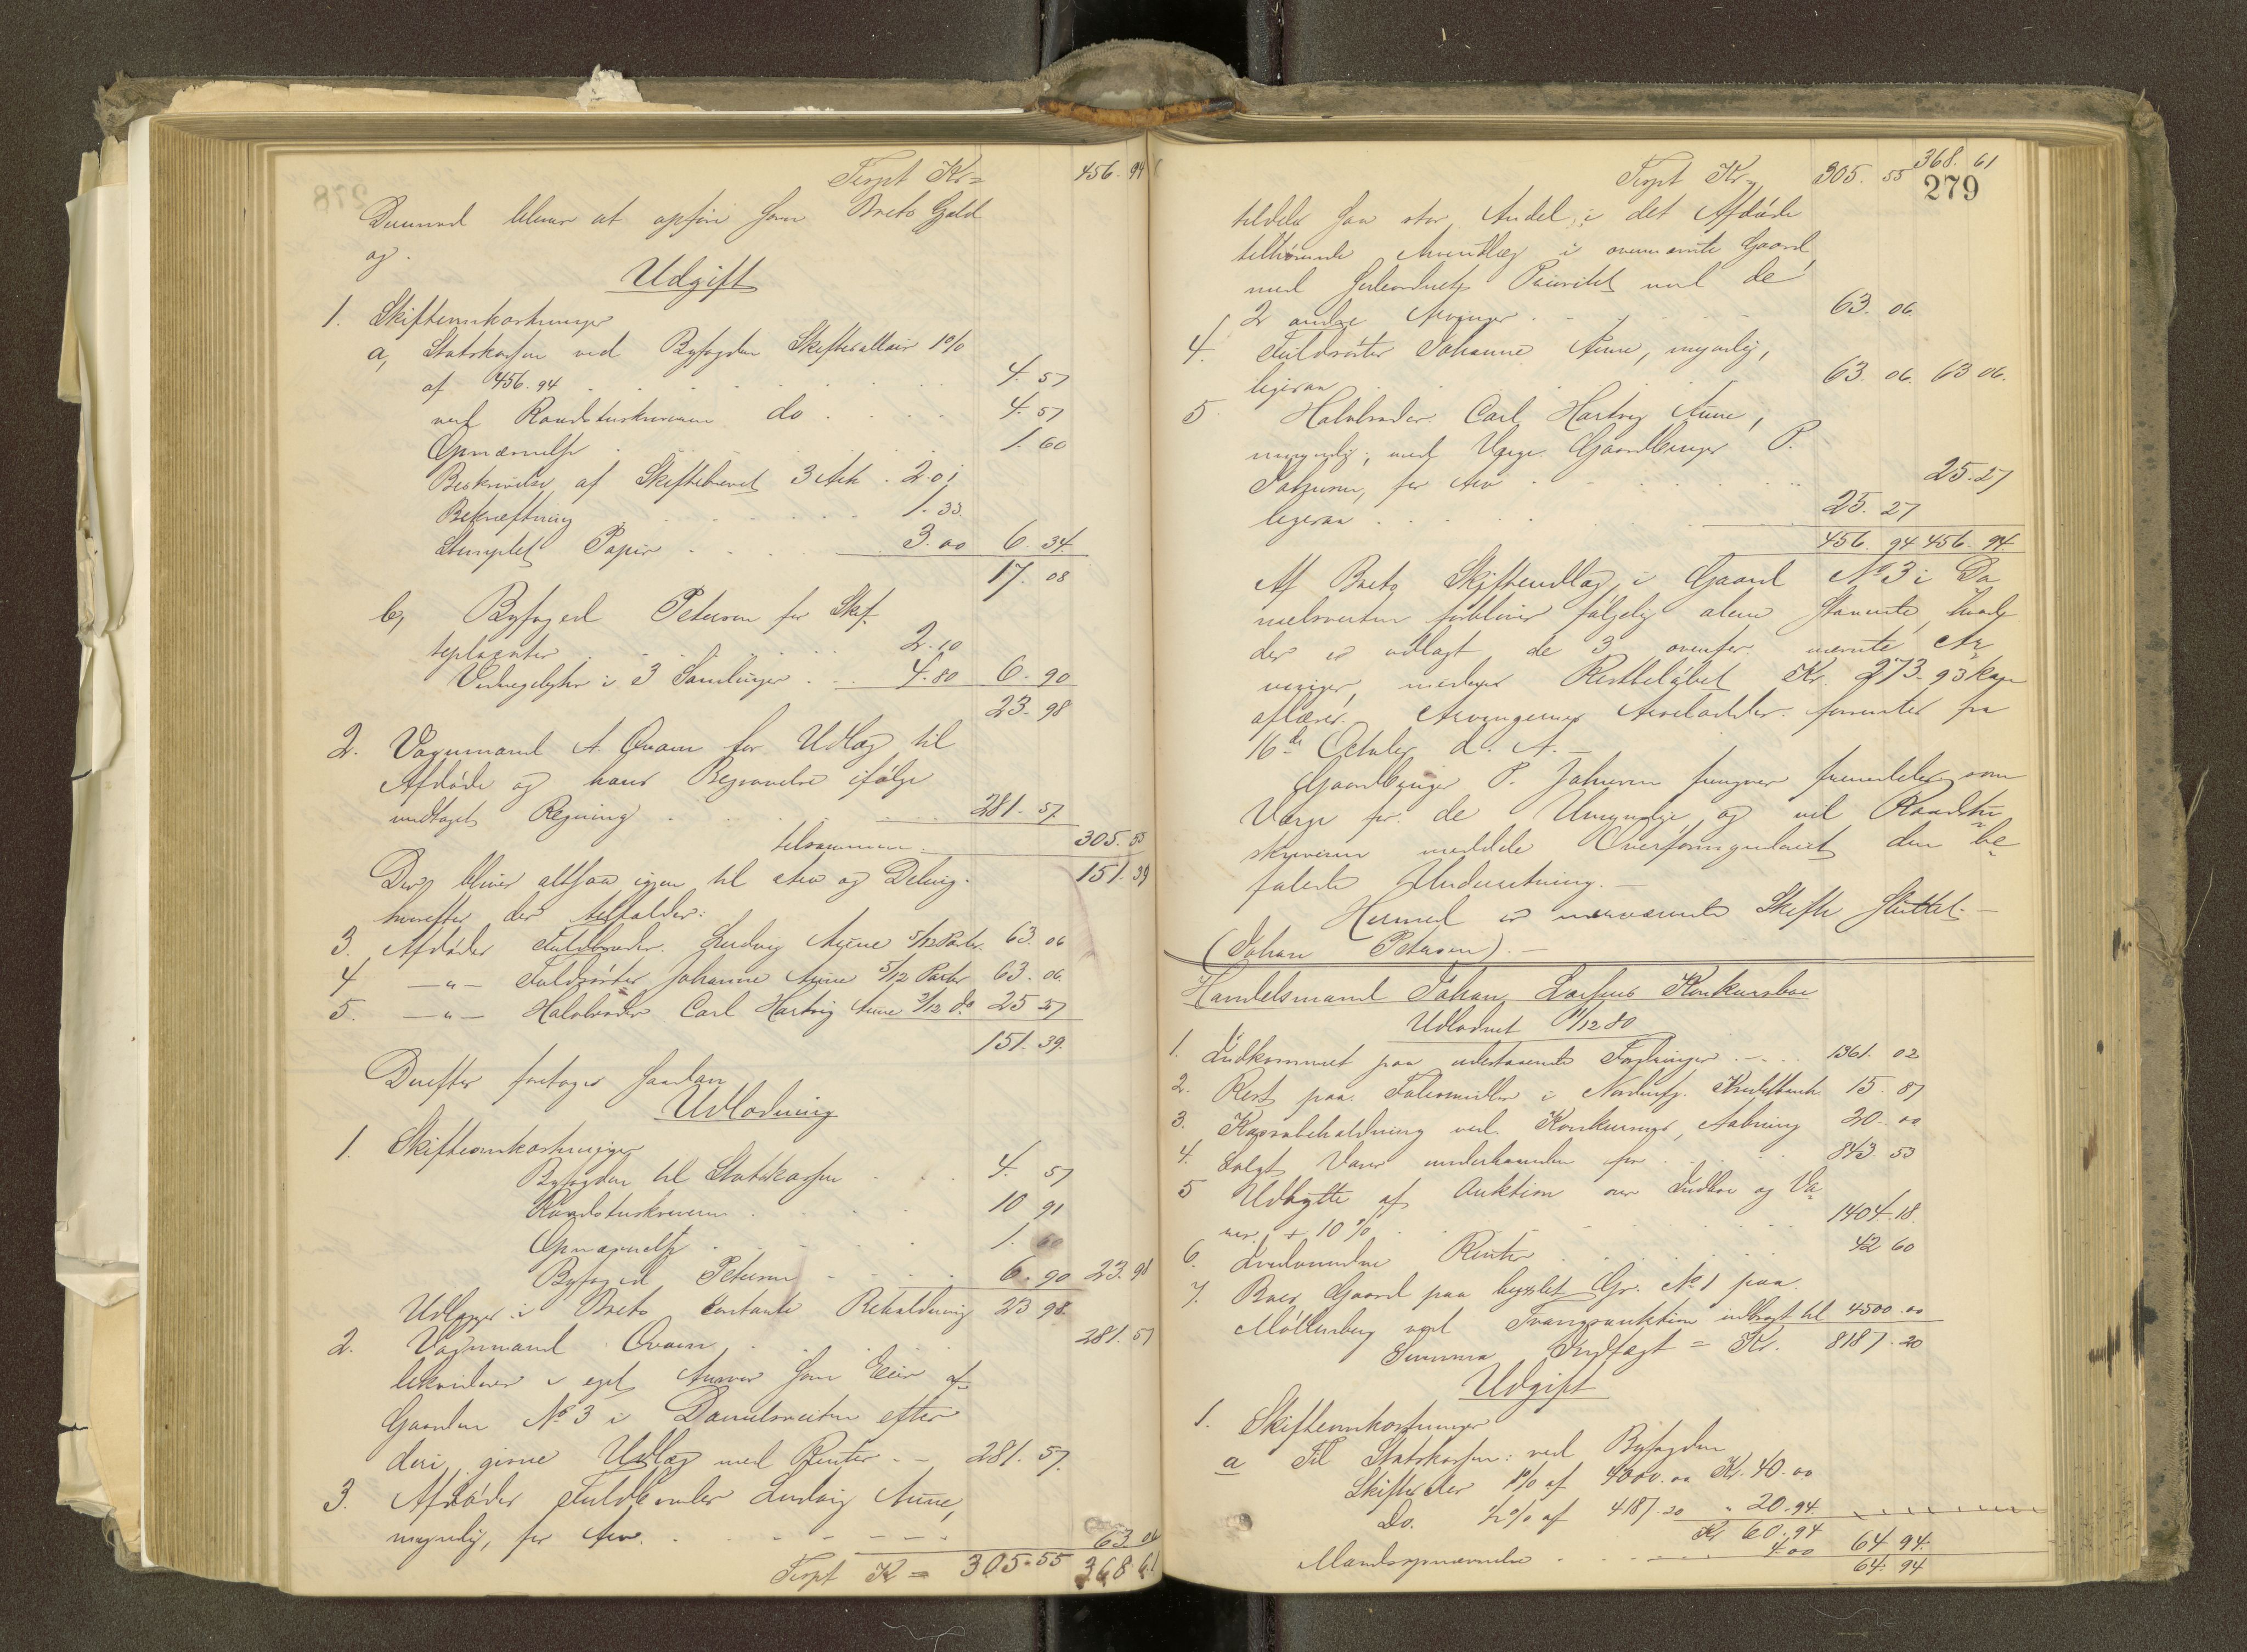 Trspt Kr= 456. 94
Dermed bliver at opføre som Boets Gjeld
og
Udgift
1. Skifteomkostninger
a, Statskassen ved Byfogden Skiftesallair 1%
af 456.94 . . . 4. 57
ved Raadstuskriveren do . . . 4. 57
Opnævnelse . . . 1. 60
Beskrivelse af Skiftebrevet 3 Ark . 2.01
Bekræftning . . . 1. 33.
Stemplet Papir . . . 3. 00 6. 34.
17. 08
b, Byfoged Petersen for Skif-
teplacater . . . 2. 10
Vidnegebyhr i 3 Samlinger . . 4. 80 6. 90
23. 98
2. Vognmand A. Qvam for Udlæg til
Afdøde og hans Begravelse ifølge
modtaget Regning . . . 281. 57.
tilsammen 305. 55
Der bliver altsaa igjen til Arv og Deling. 151. 39
hvorefter der tilfalder:
3. Afdødes Fuldbroder Ludvig Aune 5/12 Parter 63. 06
4 —"— Fuldsøster Johanne Aune 5/12 Parter 63. 06.
5. —"— Halvbroder Carl Hartvig Aune 2/12 do 25 27
151. 39.
Derefter foretages saadan
Udlodning
1. Skifteomkostninger
Byfogden til Statskassen . . . 4. 57
Raadstuskriveren . . . 10 91
Opnævnelse . . . 1. 60
Byfoged Petersen . . . 6. 90 23. 98
Udlægges i Boets contante Beholdning 23 98.
2. Vognmand Qvam . . . 281. 57
likviderer i eget Ansvar som Eier af
Gaarden No 3 i Danielsveiten efter
deri givne Udlæg med Renter . – 281. 57.
3. Afdødes Fuldbroder Ludvig Aune,
myndig, for Arv. . . . 63. 06
Trspt Kr = 305. 55 368 61
Trspt Kr= 305. 55 368. 61
279
tildeles saa stor Andel i det Afdøde
tilhørende Arveudlæg i ovennævnte Gaard
med sideordnet Prioritet med de
2 andre Arvinger . . . 63. 06.
4. Fuldsøster Johanne Aune, myndig,
ligesaa . . . 63. 06. 63 06.
5. Halvbroder Carl Hartvig Aune,
umyndig, med Værge Gaardbruger P.
Johnsen, for Arv . . . 25. 27
ligesaa . . . 25. 27
456. 94 456. 94.
Af Boets Skifteudlæg i Gaard No 3 i Da
nielsveiten forbliver følgelig alene
der er udlagt de 3 ovenfor nævnte Ar
vinger, medens Restbeløbet Kr. 273. 93
aflæses. Arvingernes Arvelodder forrentes fra
16de October d. A. —
Gaardbruger P. Johnsen fungerer fremdeles som
Værge for de Umyndige og vil Raadstu
skriveren meddele Overformynderiet den be
falede Underretning. —
Hermed er nærværende Skifte sluttet. —
(Johan Petersen). —
Handelsmand Johan Konkursbo
Udlodnet 11/12 80
1. Indkommet paa udestaaende Fordringer . – . . 1361. 02
2. Rest paa Foliomidler i Nordenfj. Kreditbank 15. 87
3. Kassabeholdning ved Konkursens Aabning 20. 00
4. Solgt Varer underhaanden for . . . 843. 53
5 Udbytte af Auktion over Indbo og Va
rer, + 10% . . . 1404. 18.
6. Indvundne Renter . . . 42 60
7. Boets Gaard paa bygslet Gr. No 1 paa
Møllenberg ved Tvangsauktion indbragt til 4500. 00
Summa Indtægt = Kr. 8187. 20
Udgift
1. Skifteomkostninger
a Til Statskassen: ved Byfogden
Skiftesaler 1% af 4000. 00 Kr. 40. 00
Do. 1/2% af 4187. 20 " 20. 94.
Kr 60. 94
Mandsopnævnelse . . . 4. 00 64 94.
64. 94